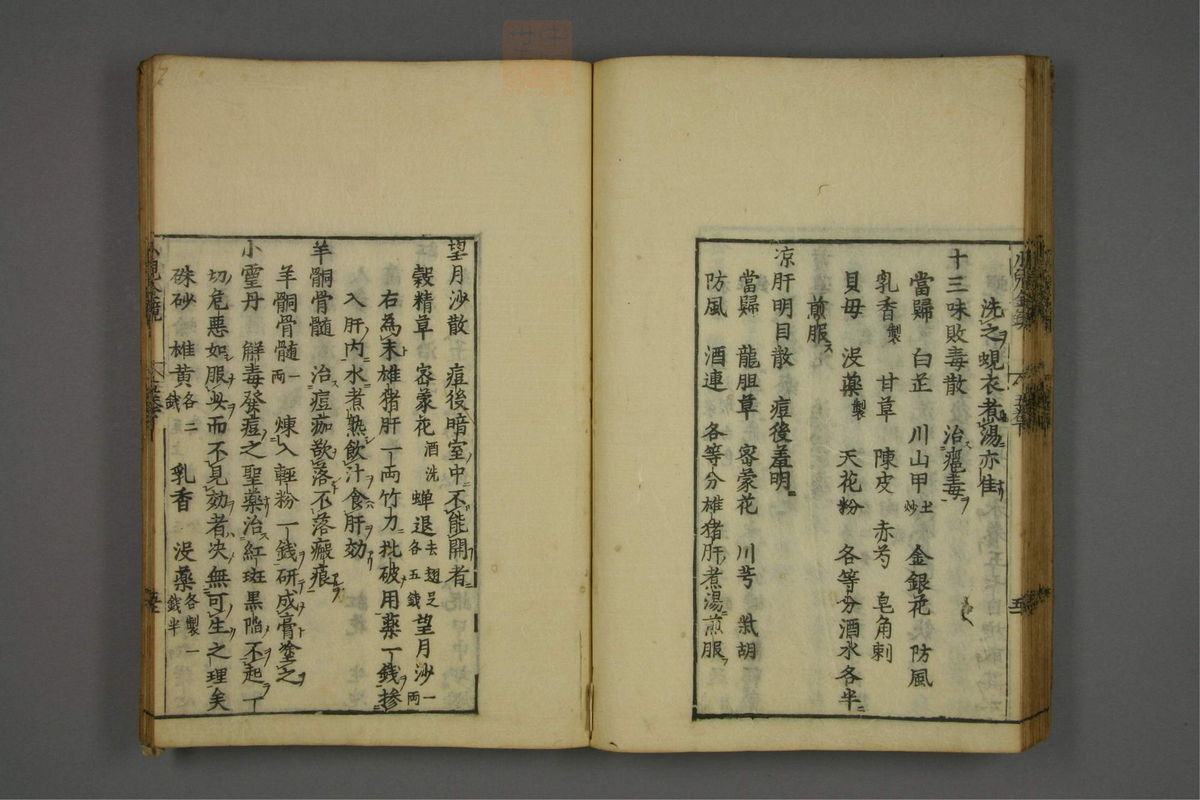 洗之蜆衣煮湯亦佳
十三味敗毒散 治瘟毒
當歸 白芷 川山甲土炒 金銀花 防風
乳香製 甘草 陳皮 赤芍 皂角刺
貝母 没藥製 天花粉 各等分酒水各半
煎服
涼肝明目散 痘後羞明
當歸 龍胆草 密蒙花 川芎 柴胡
防風 酒連 各等分雄猪肝煮湯煎服
望月沙散 痘後暗室中不能開者
穀精草 密蒙花酒洗 蟬退去翅足各五錢 望月沙一両
右為末雄猪肝一両竹刀批破用藥一錢摻
入肝内水煮熟飲汁食肝効
羊骨髓 治痘痂欲落不落瘢痕
羊骨髓一両 煉入輕粉一錢研成膏塗之
小靈丹 解毒發痘之聖藥治紅斑黒陥不起一
切危惡如服此而不見効者决無可生之理矣
硃砂 雄黄各二錢 乳香 没藥各製一錢半